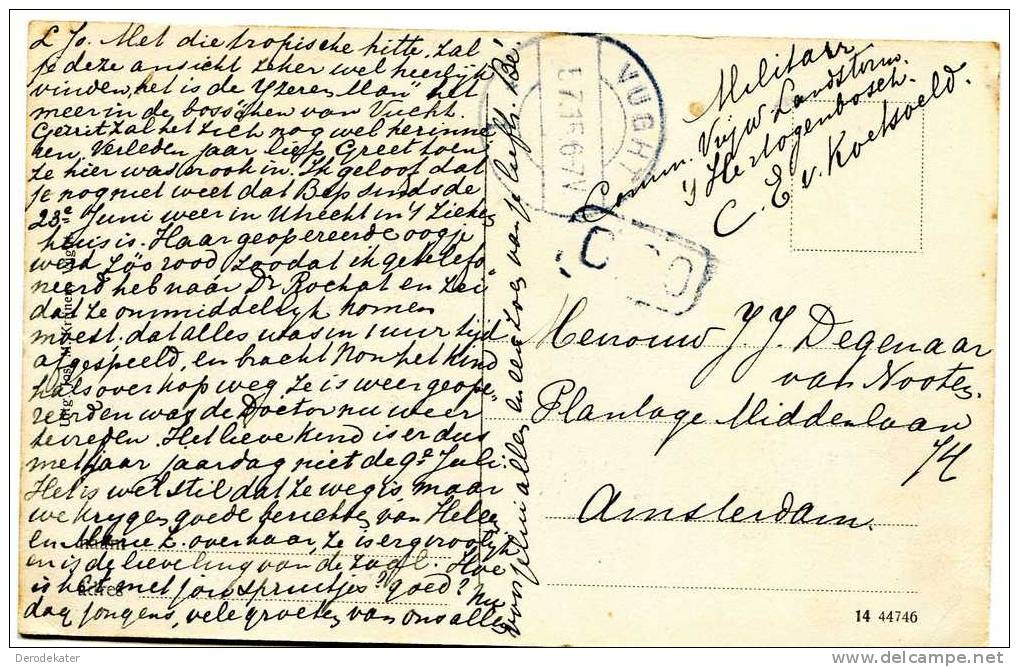 L Jo. Met die tropische hitte, zal
je deze ansicht zeker wel heerlijk
vinden, het is de "Yzeren Man" het
meer in de bosschen van Vucht.
Gerrit zal het zich nog wel herinne
ren, verleden jaar liep Greet toen
ze hier was er ook in. Ik geloof dat
je nog niet weet dat Bep sinds de
23e Juni weer in Utrecht in 't Zieken
huis is. Haar geopereerde oogje
werd zóó rood zoodat ik getelefo
neerd heb naar Dr Rochat en zei
dat ze onmiddellyk komen
moest. dat alles was in 1 uur tyd
afgespeeld, en bracht Non het kind
hals over kop weg. Ze is weer geope-
reerd en was de Doctor nu weer
tevreden. Het lieve kind is er dus
met jaar jaardag niet de 9e Juli.
Het is wel stil dat ze weg is, maar
we krygen goede berichten van
en Marie L. over haar, ze is erg vroolyk
en is de lieveling van de zaal. Hoe
is het met jou spruitjes? goed? Nu
dag jongens, vele groeten van ons allen
voor jelui allen en een zoen van je liefh. Bé.
naam
adres
Uitg. Jos. M. Krijnen, Vught
VUGHT
5.7.15.6-7N
Militair
Comm. Vrijw Landstorm
's Hertogenbosch.
C. E. v. Koetsveld.
Mevrouw J. J. Degenaar
van Nooten.
Plantage Middenlaan
74
Amsterdam.
14 44746
Derodekater
delcampe.net